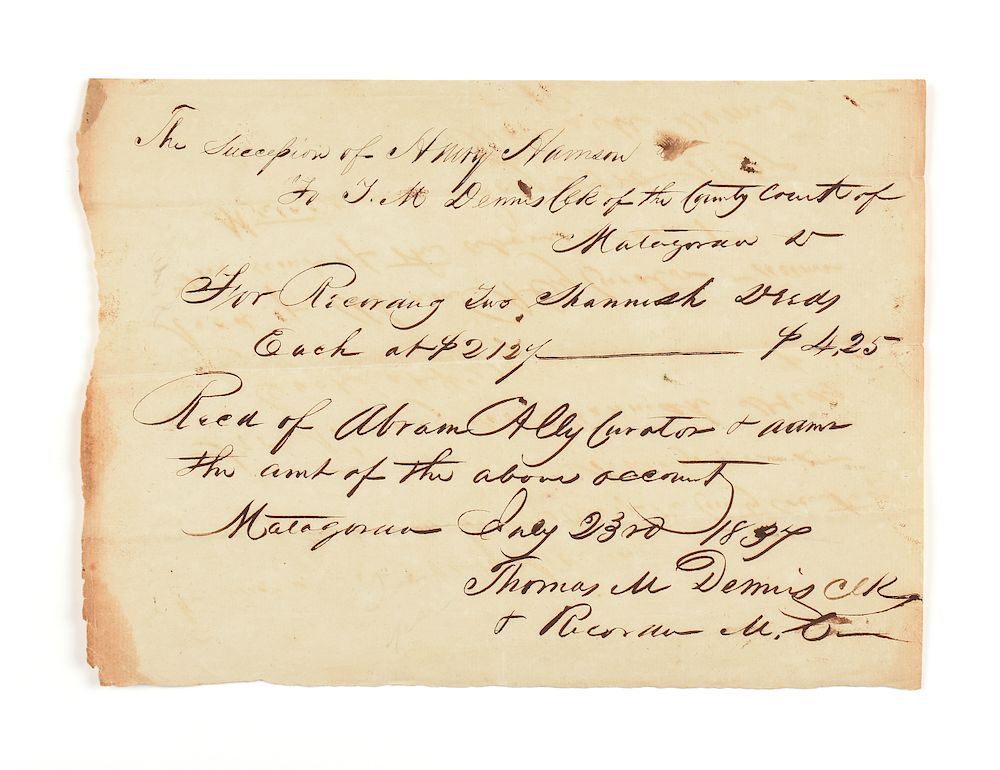 The Succession of Henry Harrison
To T. M Dennis Clk of the County Court of
Matagorda Dr
For Recording two Spannish Deeds
Each at $2 12½ $4,25
Recd of Abram Ally Curator & admr
the amt of the above account
Matagorda July 23rd 1837
Thomas M Dennis Clk
& Recorder M. Co